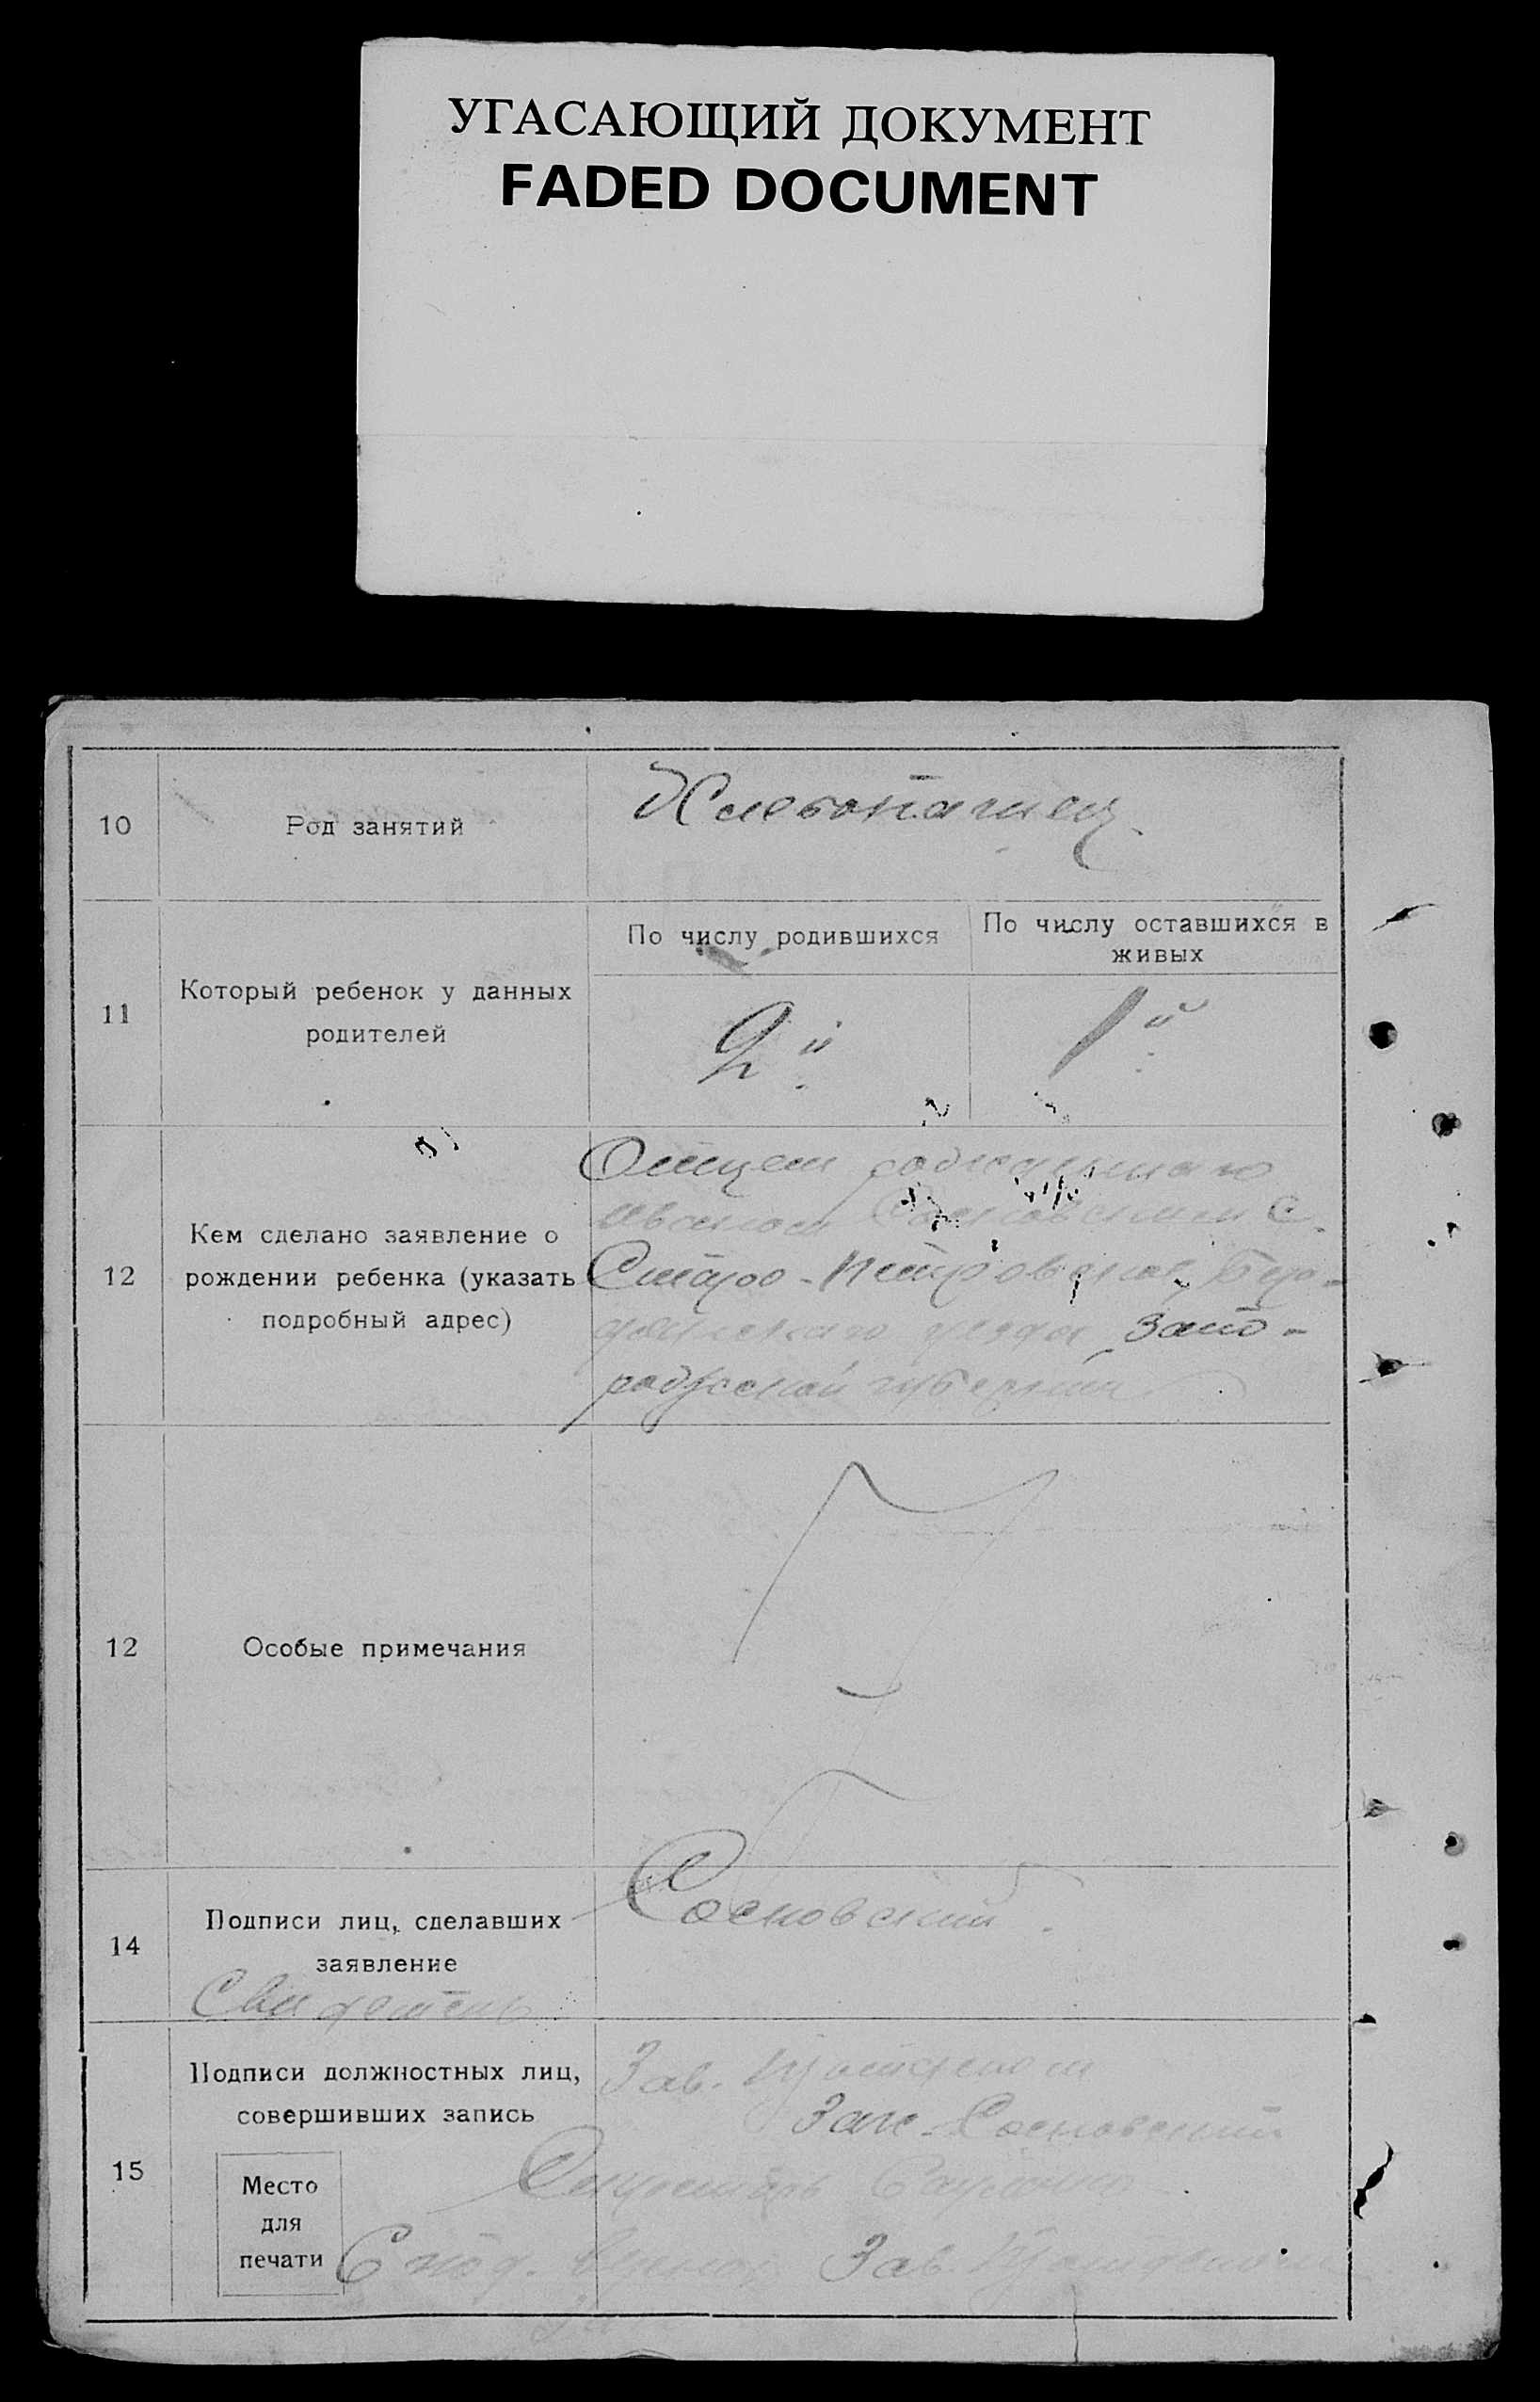 УГАСАЮЩИЙ ДОКУМЕНТ
FADED DOCUMENT
10
Род занятий
Хлебопашец.
11
Который ребенок у данных
родителей
По числу родившихся
2й
По числу оставшихся в
живых
1й
12
Кем сделано заявление о
рождении ребенка (указать
подробный адрес)
Отцем
Иваном Сосновским С.
Старо-Петровское, Бер-
дянскаго уезда Запо-
рожской губернии
12
Особые примечания
14
Подписи лиц, сделавших
заявление
Свидетель
Сосновский.
15
Подписи должностных лиц,
совершивших запись
Место
для
печати
Зав.
Загс. Сосновский
Секретарь
С под. Зав.